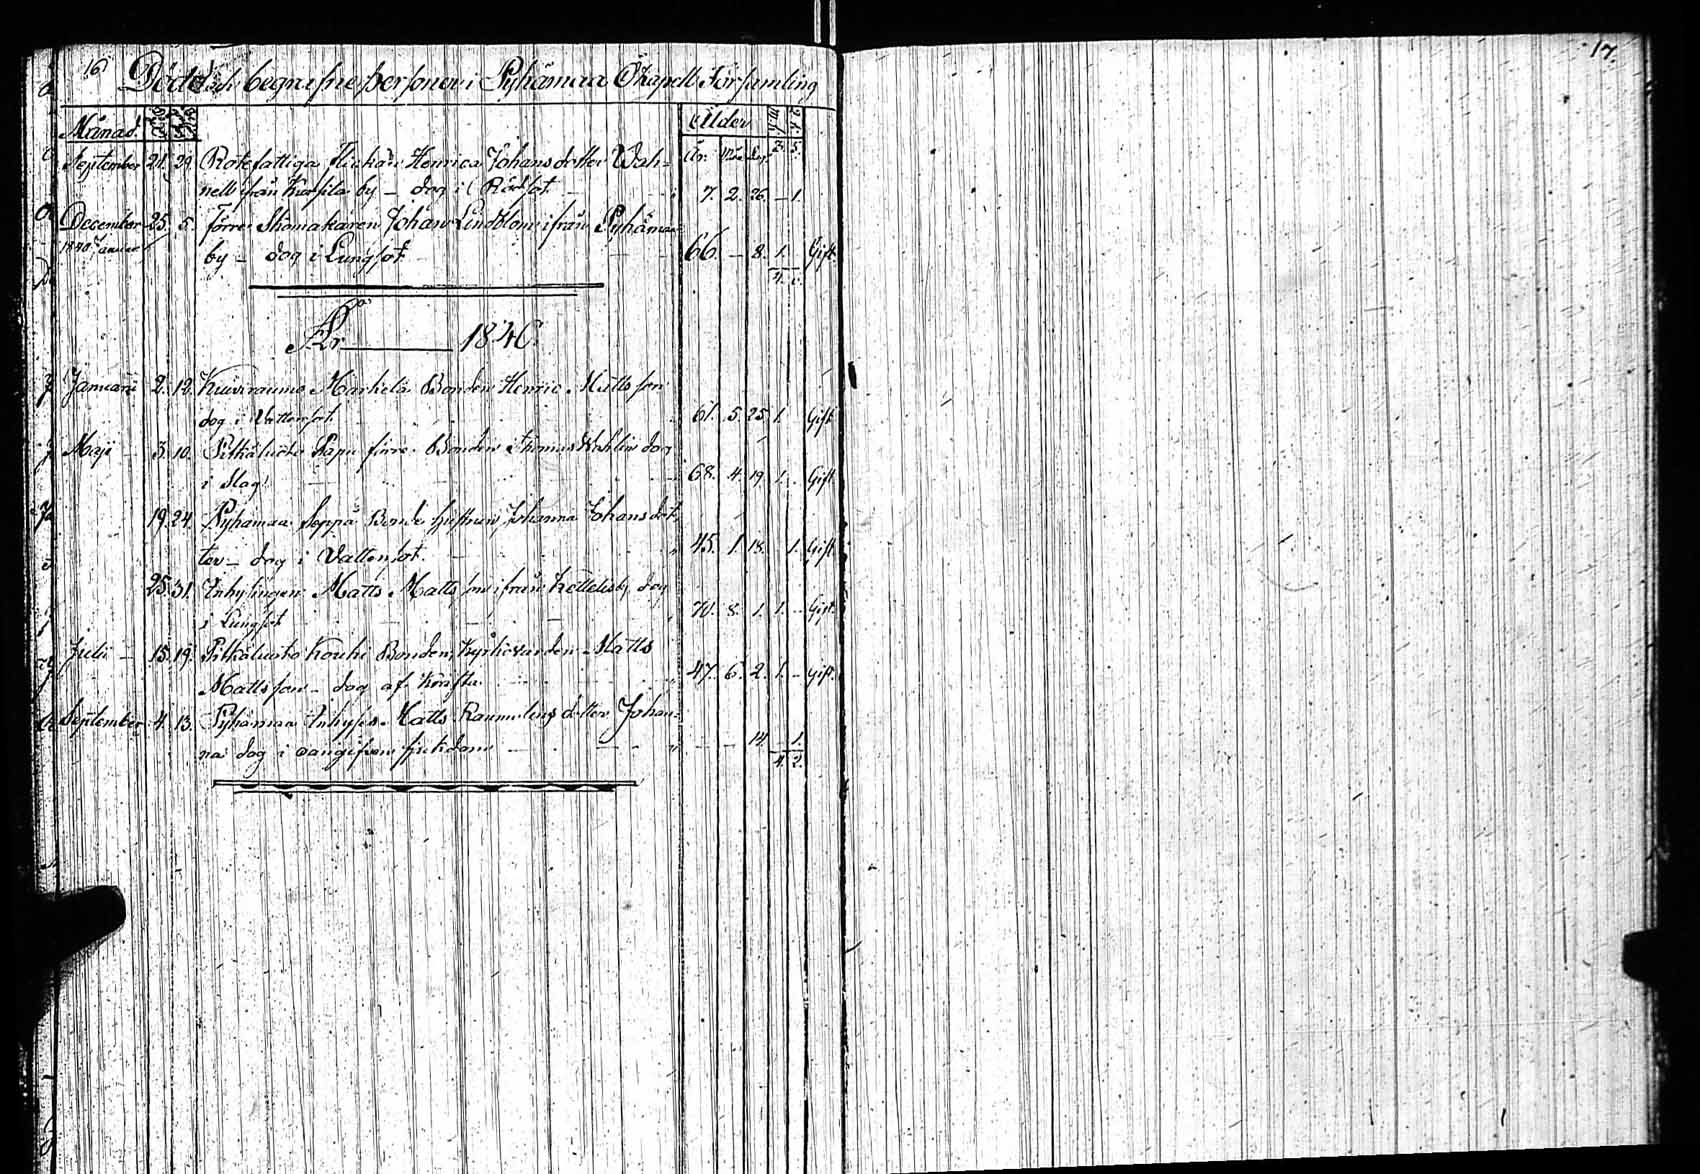 16
17.
Döde och begrafne personer i Pyhämaa Capell Församling
Månad. Ålder
September 21. 29. Rotefattiga Flickan Henrica Johansdotter Wah= År. Mån. Dag.
nell från by – dog i Rödsot. 7. 2. 26. – 1.
December 25. 5. Förre Skomakaren Johan Lindblom ifrån Pyhämaa
1840 Januari
by – dog i Lungsot 66. – 8. 1. Gift.
År 1840.
Januarii 2. 12. Kuivrauma Markela Bonden Henric Mattsson
dog i Vattensot 61. 5. 25. 1. Gift
Maji 3. 10. Pitkäluoto Papu förre Bonden Thomas Wahlin dog
i Slag. 68. 4. 19. 1. Gift
19. 24. Pyhämaa Seppä Bonde Hustrun Johanna Johansdot
ter – dog i Vattensot. 45. 1. 18. 1. Gift
25. 31. Inhysingen Matts Mattsson ifrån Kettelisby dog
i Lungsot 70. 8. 1. 1. Gift.
Julii 15. 19. Pitkäluoto Kouki Bonden, Kyrkovärden Matts
Mattsson – dog af Kräfta 47. 6. 2. 1. – Gift.
September 4. 13. Pyhämaa Inhyses Matts Raumelins dotter Johan=
na dog i oangifven sjukdom – – 14. – 1.
4. 2.